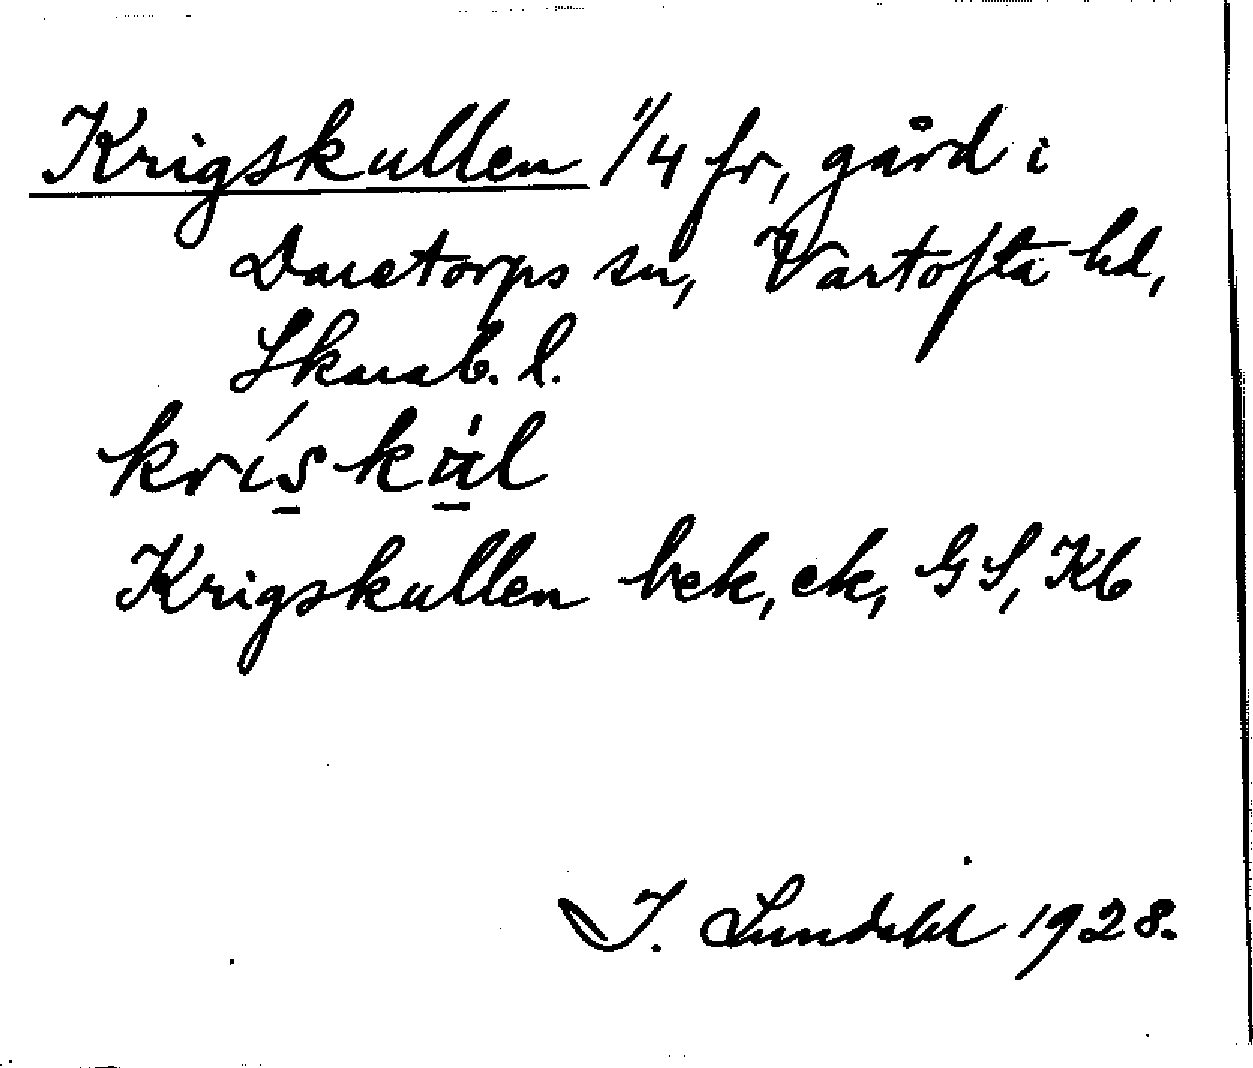 Krigskullen 1/4 fr, gård i
Daretorps sn, Vartofta hd,
Skarab. l.
krískul
Krigskullen bek, ek, GS, Kb
I. Lundahl 1928.